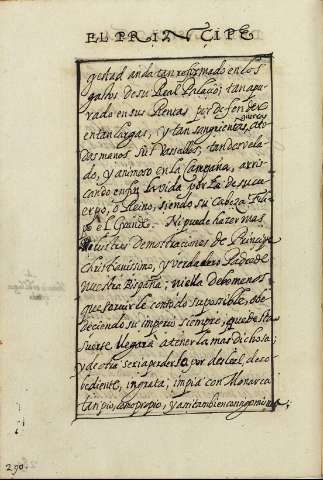 EL PRINCIPE
gestad anda tan reformado en los
gastos de su Real Palacio; tan apu-
rado en sus Rentas por defender
en tan largas, y tan sangrientas
guerras
das manos sus Vassallos, tan desvela-
do, y animoso en la Campaña, arris-
cando en fin la vida por la de su cu-
erpo, o Reino, siendo su Cabeza Fili-
po el Grande. Ni puede hazer mas
vivas demostraciones de Principe
Christianissimo, y verdadero Padre de
nuestra España; ni ella debe menos
que servirle con todo su possible, obe-
deciendo su imperio siempre, que de esta
suerte llegará a tener la mas dichosa;
y de otra seria perderse por desleal, deso-
bediente, ingrata; impia con Monarca
tan pio, como propio, y assi tambien con ignominia;
290.